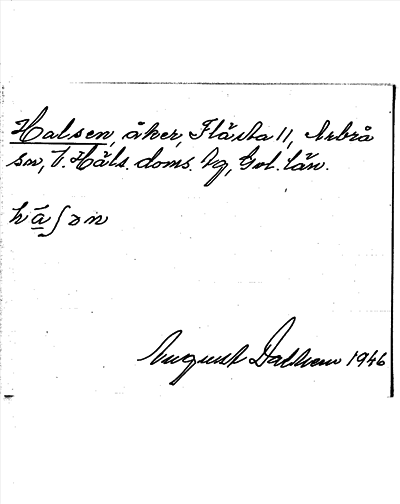 Halsen, åker, Flästa 11, Arbrå
sn, V. Häls. doms. lg, Gvl. län.
hàʃən
August Dalhem 1946